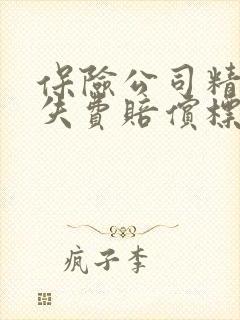 保險公司精
失費賠償標
疯子李